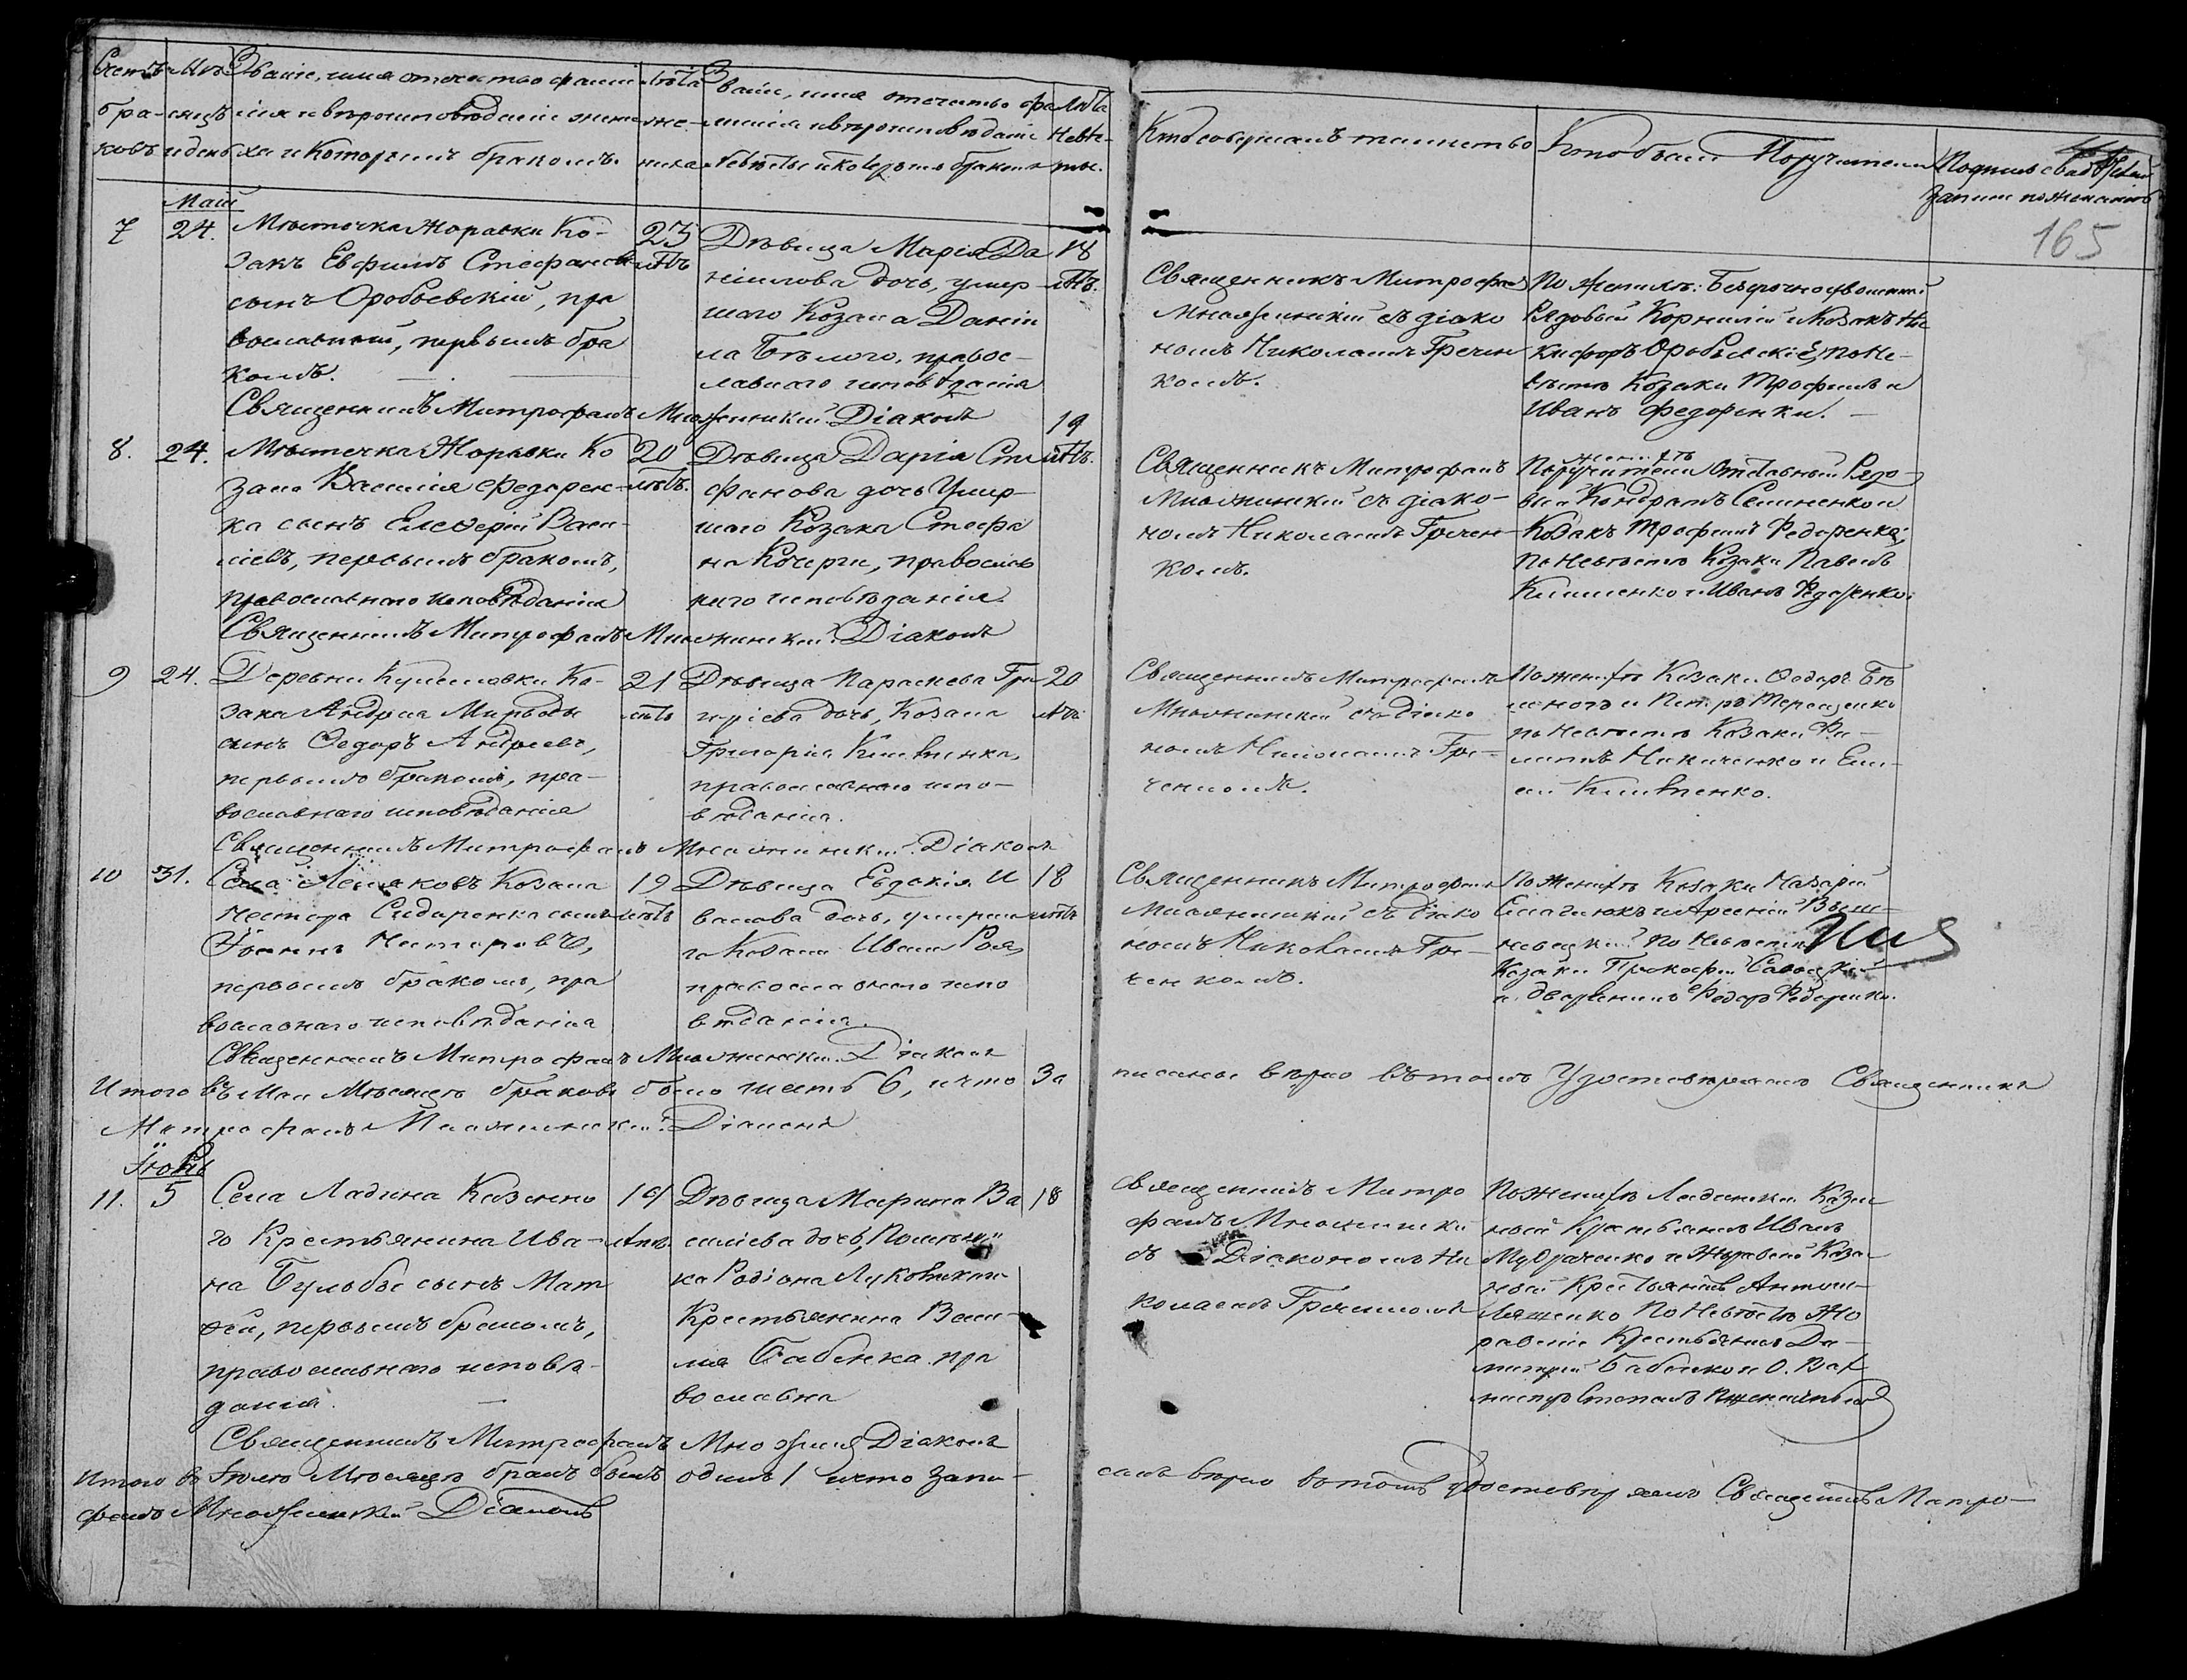 Счетъ бра-ковъ
Мѣ-сяцъ и день
Званіе, имя отечество фами-
лія и вѣроисповѣданіе жени-
ха и которымъ бракомъ.
Лѣта же-ниха
Званіе, имя отечество фа
милія и вѣроисповѣданіе
невѣсты и которымъ бракомъ
Лѣта невѣ-сты.
Кто совершалъ таинство
Кто были Поручители
Подпись свидѣтелей
записи по желанію
165
Маій
7
24.
Мѣстечка Журавки Ко-
закъ Евфимъ Стефановъ
сынъ Оробьевскій, пра
вославный, первымъ бра
комъ.
23
лѣтъ
Дѣвица Марія Да
ніилова дочь, умер-
шаго Козака Даніи
ла Бѣлого, правос-
лавнаго исповѣданія
18
лѣтъ.
Священникъ Митрофанъ
Множинскій съ діако
номъ Николаемъ Гречен
комъ.
По женихѣ: Безсрочноотпускной
Рядовый Корнилій и Козакъ Ни
кифоръ Оробьевскіе, по не-
вѣстѣ Козаки Трофимъ и
Иванъ Федоренки.
Священникъ Митрофанъ Множинскій Діаконъ
8.
24.
Мѣстечка Журавки Ко
зака Василія Федорен-
ка сынъ Елевферій Васи-
ліевъ, первымъ бракомъ,
православнаго исповѣданія
20
лѣтъ.
Дѣвица Дарія Сте
фанова дочь Умер-
шаго Козака Стефа
на Кочерги, православ
наго исповѣданія.
19
лѣтъ.
Священникъ Митрофанъ
Множинскій съ діако-
номъ Николаемъ Гречен-
комъ.
женихѣ
Поручители Отставный Рядо-
вый Кондратъ Семененко и
Козакъ Трофимъ Федоренка;
по невѣстѣ Козаки Павелъ
и Иванъ Федоренко.
Священникъ Митрофанъ Множинскій Діаконъ
9
24.
Деревни Ко-
зака Андрея
сынъ Ѳедоръ Андреевъ,
первымъ бракомъ, пра-
вославнаго исповѣданія
21
лѣтъ
Дѣвица Параскева Гри
горіева дочь, Козака
Григорія
православнаго испо-
вѣданія.
20
лѣтъ
Священникъ Митрофанъ
Множинскій съ діако
номъ Николаемъ Гре-
ченкомъ.
По женихѣ Козаки Ѳедоръ Бѣ
и Петръ Терещенко
по невѣстѣ Козаки Фи-
липъ Никитенко и
Священникъ Митрофанъ Множинскій Діаконъ
10
31.
Села Лемяковъ Козака
Нестора Сидоренка сынъ
Іоаннъ Несторовъ,
первымъ бракомъ, пра
вославнаго исповѣданія
19
лѣтъ
Дѣвица Евдокія И
ванова дочь, умерша
го Козака Ивана
православнаго испо
вѣданія.
18
лѣтъ
Священникъ Митрофанъ
Множинскій съ діако
номъ Николаемъ Гре-
ченкомъ.
По женихѣ Козаки Назарій
и Арсеній Виш-
невецкій по невѣстѣ
Козаки Прокофій Савицкій
и дворянинъ Федоръ Федоренко.
Священникъ Митрофанъ Множинскій Діаконъ
Итого въ Маи Мѣсяцѣ браковъ было шесть 6, и что За
писаны вѣрно въ томъ Удостовѣряемъ Священникъ
Митрофанъ Множинскій Діаконъ
Іюнь
11.
5
Села Ладина Казенна
го Крестьянина Ива-
на Бульбы сынъ Мат
ѳей, первымъ бракомъ,
православнаго исповѣ-
данія.
19
лѣтъ.
Дѣвица Марина Ва
силіева дочь,
ка Родіона
Крестьянина Васи-
лія Бабенка пра
вославна
18
Священникъ Митро
фанъ Множинскій
съ Діакономъ Ни
колаемъ Греченкомъ
По женихѣ Ладинскій Казен
ный Крестьянинъ Иванъ
и Журавскій Казен
ный Крестьянинъ Антонъ
Лященко по Невѣстѣ Жу
равскіе Крестьянинъ Ди-
митрій Бабенко и
Степанъ
Священникъ Митрофанъ Множинскій Діаконъ
Итого въ Іюнѣ Мѣсяцѣ бракъ былъ одинъ 1 и что запи-
санъ вѣрно въ томъ удостовѣряемъ Священникъ Митро-
фанъ Множинскій Діаконъ